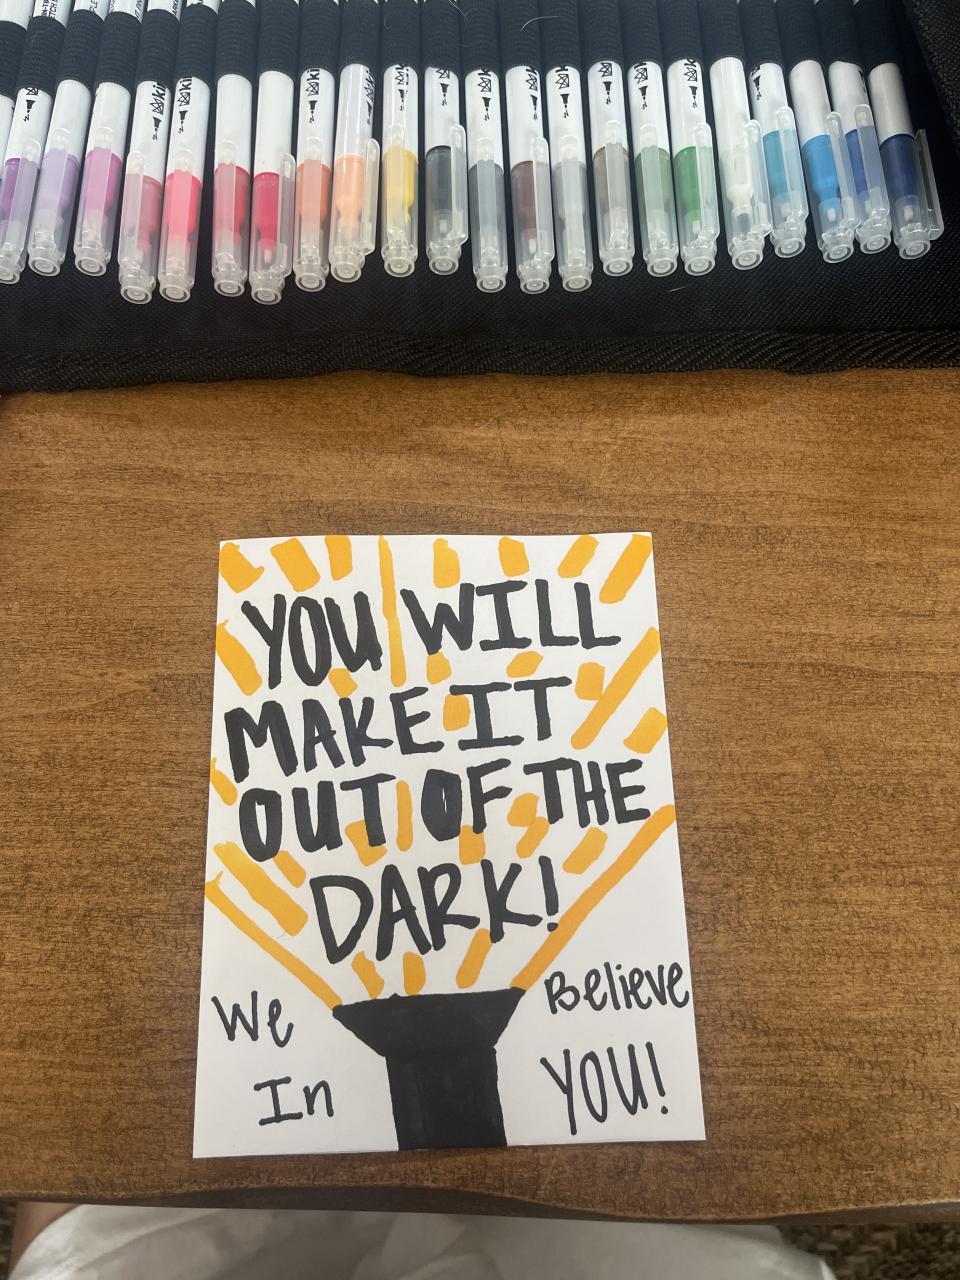 YOU WILL
MAKE IT
OUT OF THE
DARK!
We Believe
In YOU!